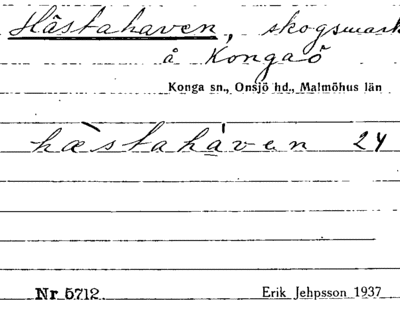 Hästahaven, skogsmark
å Kongaö
Konga sn., Onsjö hd., Malmöhus län
hæ̀stahá̱ven 24
Nr 5712
Erik Jehpsson 1937